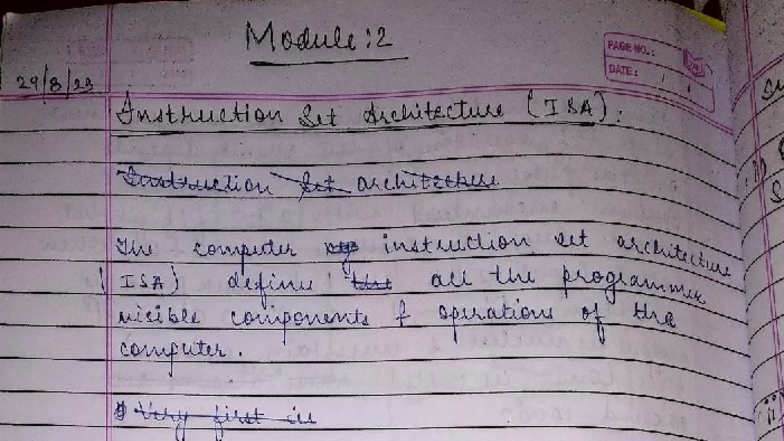 Module: 2
PAGE NO.:
DATE: / /
29/8/23
Instruction Set Architecture (ISA):
Instruction Set architecture
The computer instruction set architecture
(ISA) define all the programmer
visible components & operations of the
computer.
Very first is